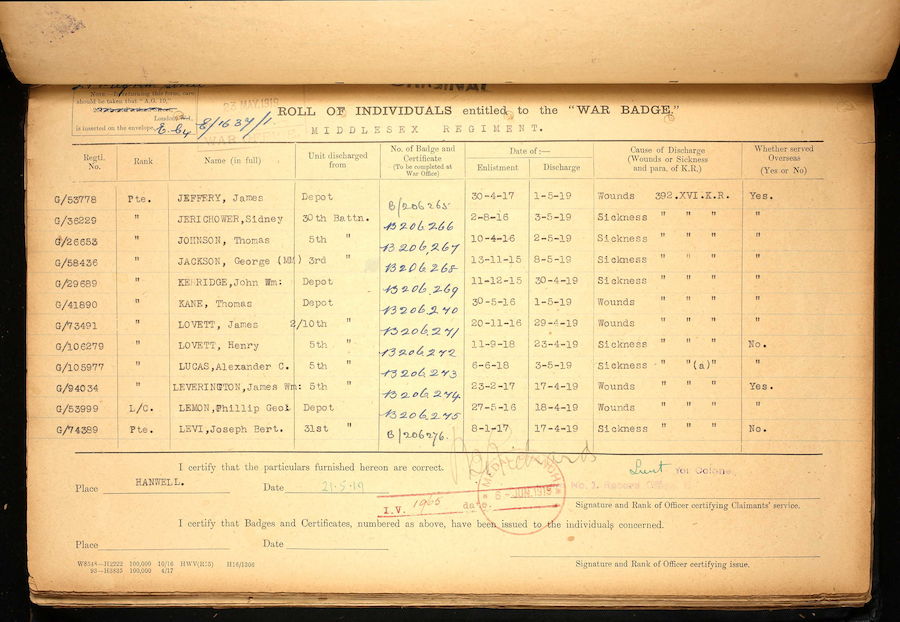 ORIGINAL
Note.—In returning this form, care
should be taken that "A.G. 10,"
London
is inserted on the envelope.
E/1637/1
23 MAY 1919
ROLL OF INDIVIDUALS entitled to the "WAR BADGE."
MIDDLESEX REGIMENT.
Regtl. No. Rank Name (in full) Unit discharged from No. of Badge and Certificate (To be completed at War Office) Date of :— Enlistment Discharge Cause of Discharge (Wounds or Sickness and para. of K.R.) Whether served Overseas (Yes or No)
G/53778 Pte. JEFFERY, James Depot B/206265 30-4-17 1-5-19 Wounds 392.XVI.K.R. Yes.
G/36229 " JERICHOWER,Sidney 30th Battn. B206266 2-8-16 3-5-19 Sickness " " " "
G/26653 " JOHNSON, Thomas 5th " B206,267 10-4-16 2-5-19 Sickness " " " "
G/58436 " JACKSON, George (MM) 3rd " B206268 13-11-15 8-5-19 Sickness " " " "
G/29689 " KERRIDGE,John Wm: Depot B206,269 11-12-15 30-4-19 Sickness " " " "
G/41890 " KANE, Thomas Depot B206,270 30-5-16 1-5-19 Wounds " " " "
G/73491 " LOVETT, James 2/10th " B206,271 20-11-16 29-4-19 Wounds " " " "
G/106279 " LOVETT, Henry 5th " B206,272 11-9-18 23-4-19 Sickness " " " No.
G/105977 " LUCAS,Alexander C. 5th " B206,273 6-6-18 3-5-19 Sickness " "(a)" "
G/94034 " LEVERINGTON,James Wm: 5th " B206,274 23-2-17 17-4-19 Wounds " " " Yes.
G/53999 L/C. LEMON,Phillip Geo: Depot B206,275 27-5-16 18-4-19 Wounds " " " "
G/74389 Pte. LEVI,Joseph Bert. 31st " B/206276. 8-1-17 17-4-19 Sickness " " " No.
I certify that the particulars furnished hereon are correct.
Lieut for Colone
Place HANWELL. Date 21-5-19
6-JUN.1919
No. 3. Record
I.V. 1965 date
Signature and Rank of Officer certifying Claimants' service.
I certify that Badges and Certificates, numbered as above, have been issued to the individuals concerned.
Place Date
W8548—H2222 100,000 10/16 HWV(R35) H16/1306
93—H3835 100,000 4/17
Signature and Rank of Officer certifying issue.